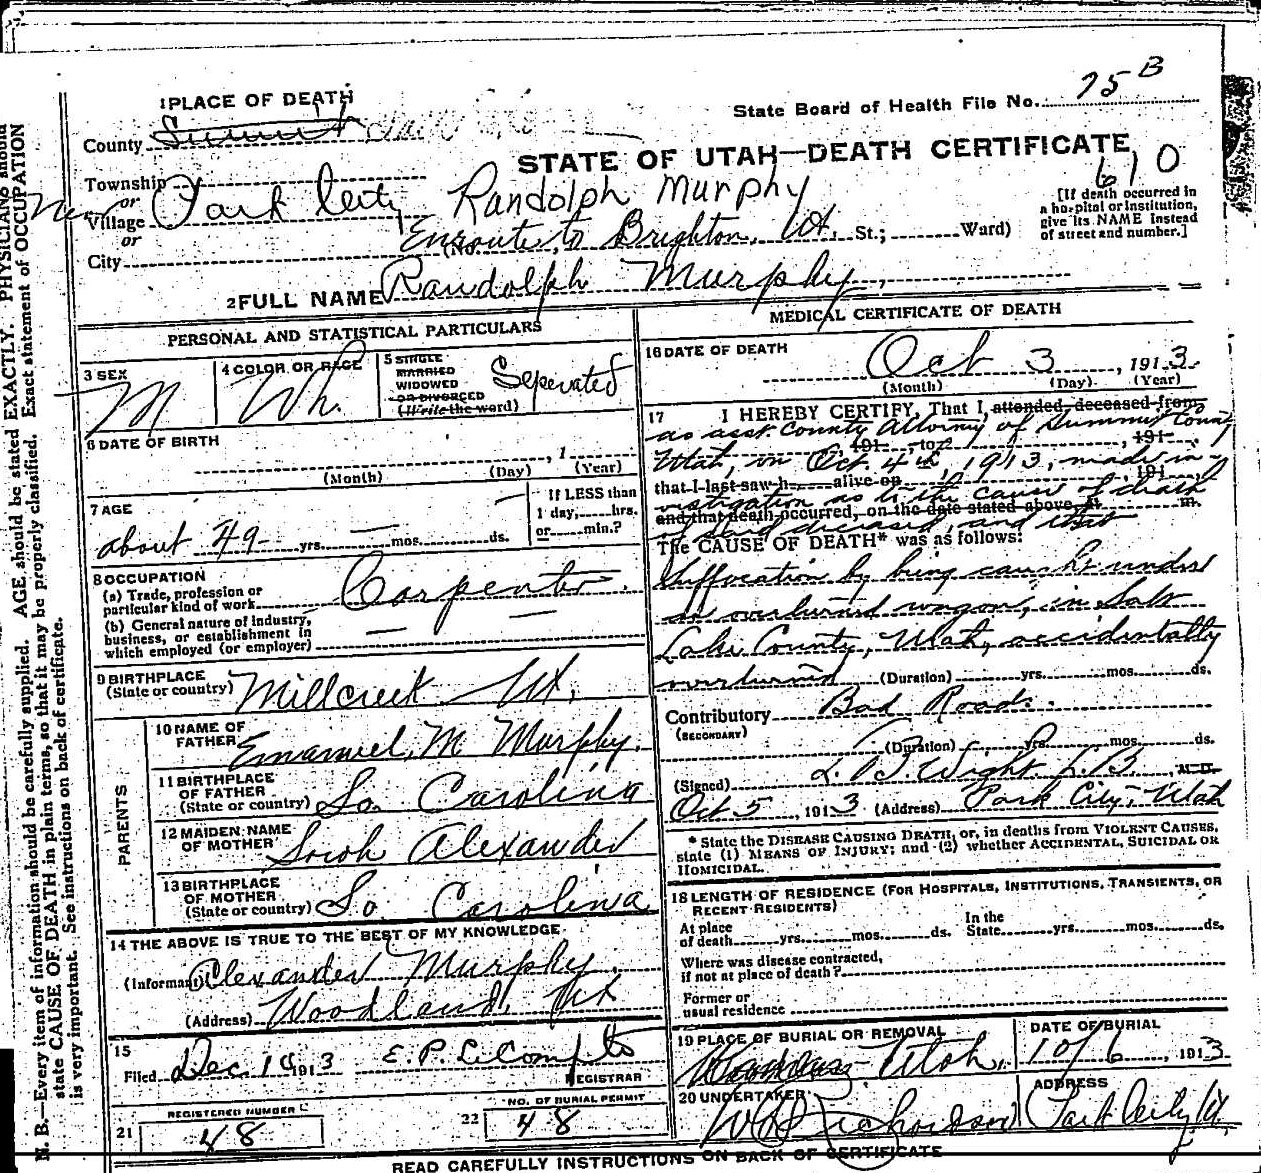 1 PLACE OF DEATH
State Board of Health File No. 75 B
County Summit
STATE OF UTAH—DEATH CERTIFICATE
610
Township
or
Village Park City
Randolph Murphy
[If death occurred in
a hospital or institution,
give its NAME instead
of street and number.]
or
City (No. Enroute to Brighton, Ut. St.; Ward)
2 FULL NAME Randolph Murphy
PERSONAL AND STATISTICAL PARTICULARS
3 SEX
M
4 COLOR OR RACE
Wh.
5 SINGLE
MARRIED
WIDOWED
OR DIVORCED
(Write the word)
Seperated
6 DATE OF BIRTH
, 1
(Month) (Day) (Year)
7 AGE
about 49 yrs. mos. ds.
If LESS than
1 day, hrs.
or min.?
8 OCCUPATION
(a) Trade, profession or
particular kind of work
Carpenter.
(b) General nature of industry,
business, or establishment in
which employed (or employer)
9 BIRTHPLACE
(State or country) Millcreek Ut.
PARENTS
10 NAME OF
FATHER Emanuel M Murphy.
11 BIRTHPLACE
OF FATHER
(State or country) So. Carolina
12 MAIDEN NAME
OF MOTHER Sarah Alexander
13 BIRTHPLACE
OF MOTHER
(State or country) So. Carolina
14 THE ABOVE IS TRUE TO THE BEST OF MY KNOWLEDGE
(Informant) Alexander Murphy
(Address) Woodland, Ut
15
Filed Dec 1 1913 E. P. LeCompte
REGISTRAR
21 REGISTERED NUMBER
48
22 NO. OF BURIAL PERMIT
48
MEDICAL CERTIFICATE OF DEATH
16 DATE OF DEATH
Oct 3, 1913
(Month) (Day) (Year)
17 I HEREBY CERTIFY, That I attended deceased from
as asst. County Attorney of Summit County
191 , to , 191
Utah, on Oct. 4th, 1913, made in-
that I last saw h alive on 191
vestigation as to the cause of death
and that death occurred, on the date stated above, at m.
of said deceased, and that
The CAUSE OF DEATH* was as follows:
Suffocation by being caught under
an overturned wagon, in Salt
Lake County, Utah, accidentally
overturned (Duration) yrs. mos. ds.
Contributory Bad Roads.
(SECONDARY)
(Duration) yrs. mos. ds.
(Signed) L. B. Wight L.B., M. D.
Oct 5, 1913 (Address) Park City, Utah
* State the DISEASE CAUSING DEATH, or, in deaths from VIOLENT CAUSES,
state (1) MEANS OF INJURY; and (2) whether ACCIDENTAL, SUICIDAL OR
HOMICIDAL.
18 LENGTH OF RESIDENCE (FOR HOSPITALS, INSTITUTIONS, TRANSIENTS, OR
RECENT RESIDENTS)
At place
of death yrs. mos. ds.
In the
State yrs. mos. ds.
Where was disease contracted,
if not at place of death?
Former or
usual residence
19 PLACE OF BURIAL OR REMOVAL
Utah.
DATE OF BURIAL
10/6, 1913
20 UNDERTAKER
W Richardson
ADDRESS
Park City Ut.
READ CAREFULLY INSTRUCTIONS ON BACK OF CERTIFICATE
N. B.—Every item of information should be carefully supplied. AGE should be stated EXACTLY. PHYSICIANS should
state CAUSE OF DEATH in plain terms, so that it may be properly classified. Exact statement of OCCUPATION
is very important. See instructions on back of certificate.